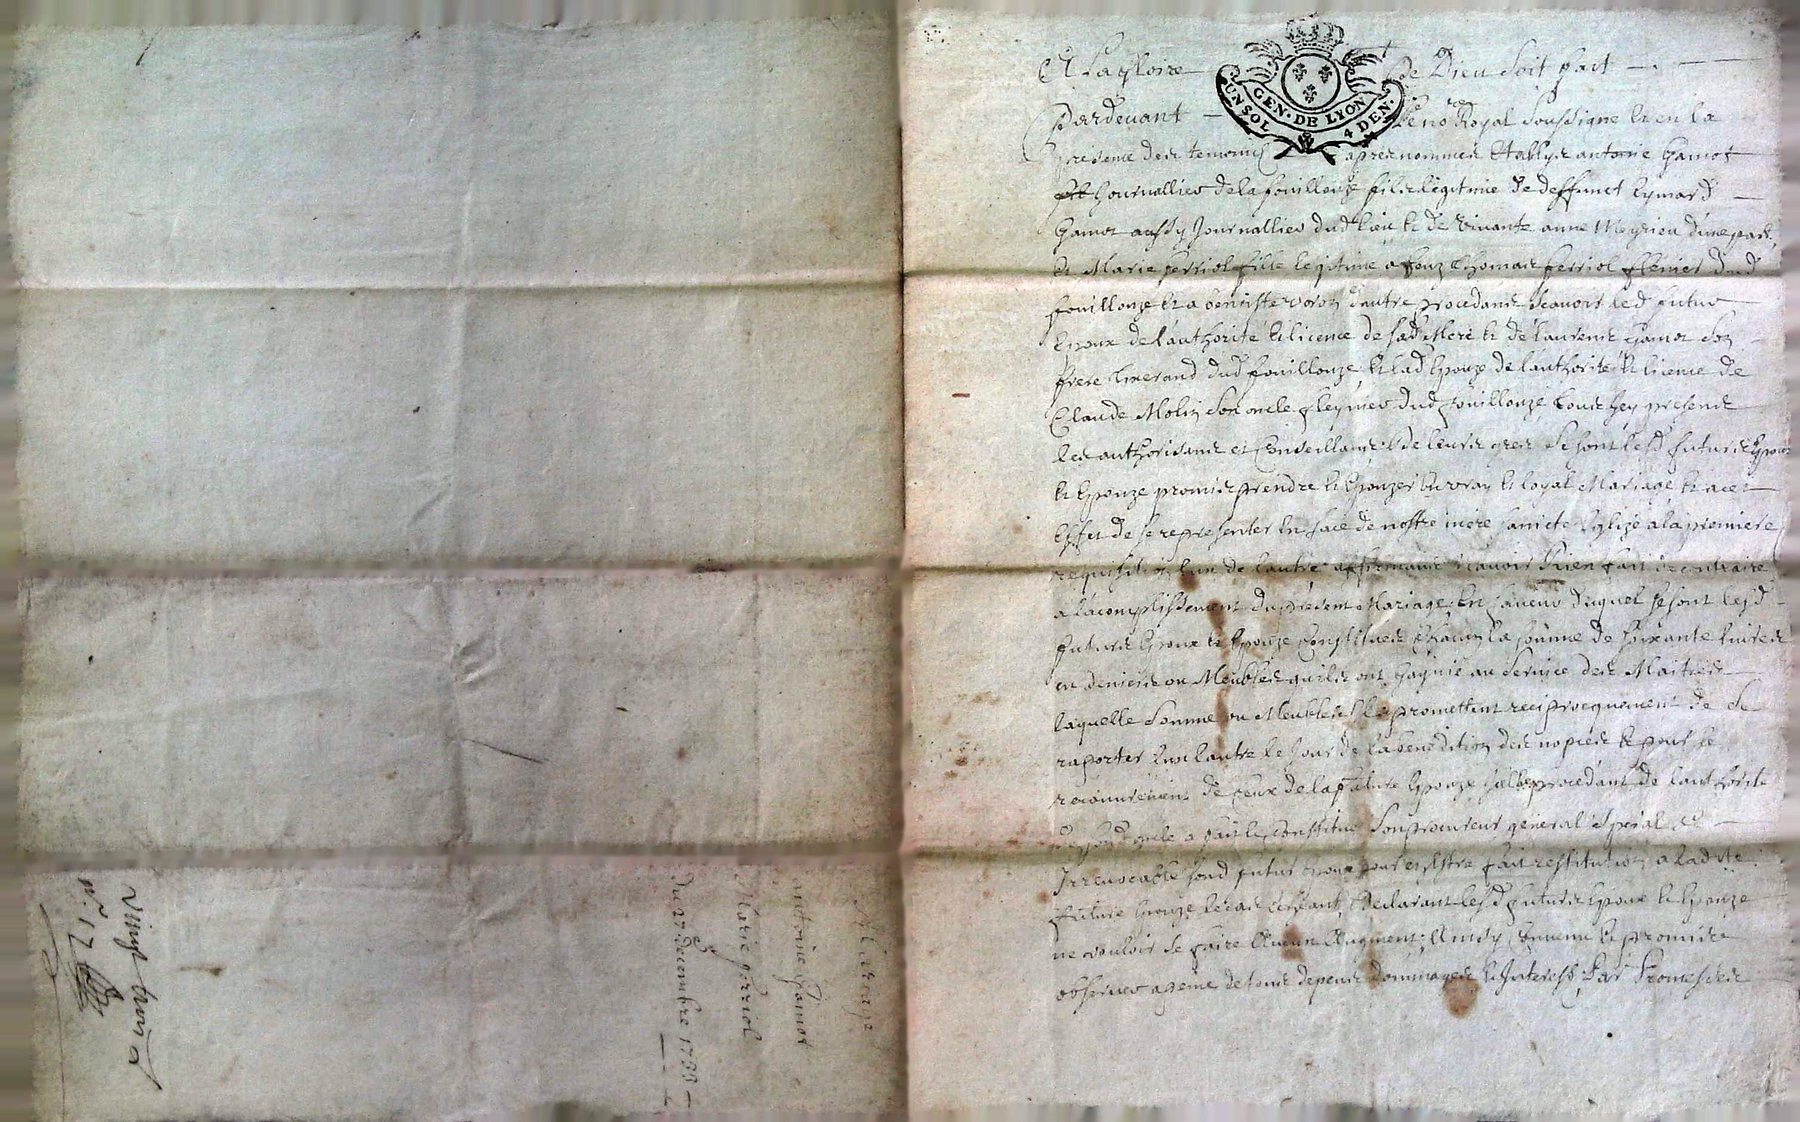 A La gloire de Dieu soit fait
GEN. DE LYON
UN SOL 4 DEN.
Pardevant le no.re Royal soussigne et en la
presence des temoins apres nommes Etablys antoine Gamot
journallier de la fouillouze fils legitime de deffunct Eymard
Gamot aussy Journallier dud lieu et de vivante anne Meyrieu d'une part
et Marie ferriol fille legitime a feuz Thomas ferriol dud
fouillouze et a benoiste d'autre procedants scavoir led futur
Epoux de l'authorité et licence de sad Mere et de laurent Gamot son
frere dud fouillouze et lad Epouze de l'authorité et licence de
Claude Molin son oncle dud fouillouze tous icy presents
les authorisants et Conseillants de leurs gres se sont lesd futurs Epoux
et Epouze promis prendre et Epouzer en vray et loyal Mariage et a cet
Effet de se representer en face de nostre mere saincte Eglize a la premiere
requisition l'un de l'autre affirmants n'avoir Rien fait de contraire
a l'acomplissement du present Mariage En faveur duquel se sont lesd
futurs Epoux et Epouze Constitues chacun la somme de soixante livres
en deniers ou Meubles quils ont gagnié au service des Maitres
laquelle somme ou Meubles ils promettent reciprocquement de se
raporter l'un l'autre le jour de la benediction des nopces et pour le
recouvrement de ceux de la future Epouze procedant de l'authorité
de sond oncle a fait et constitué son procureur general special et
Irrevocable sond futur Epoux pour en Estre fait restitution a ladite
future Epouze le cas Echeant, Declarant lesd futurs Epoux et Epouze
ne vouloir se faire Aucun Augment, Ainsy convenu et promis
observer a peine de tous depens dommages et Interests, Par Promesses
Mariage
antoine Gamot
Marie ferriol
du 27 decembre 1733
Vingt trois
n.o 12